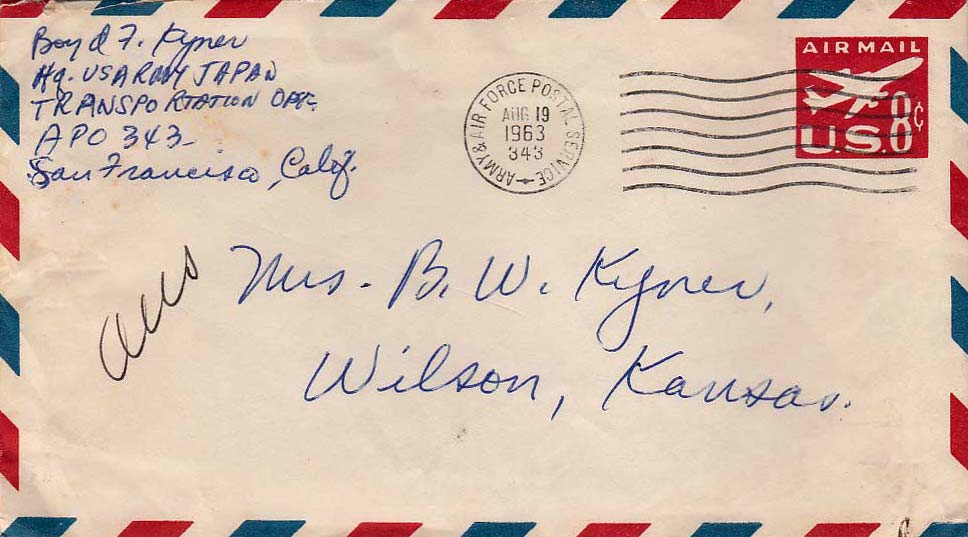 Boyd F. Kyner
Hq. US ARMY JAPAN
TRANSPORTATION OFF.
APO 343
San Francisco, Calif.
ARMY & AIR FORCE POSTAL SERVICE
AUG 19
1963
343
AIR MAIL
U.S. 8¢
Ans
Mrs. B. W. Kyner,
Wilson, Kansas.